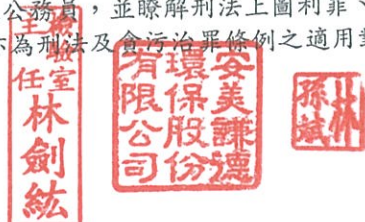 公務員，並瞭解刑法上圖利罪、
為刑法及貪污治罪條例之適用對
檢驗室
主任
林劍紘
安美謙德
環保股份
有限公司
林
孫斌